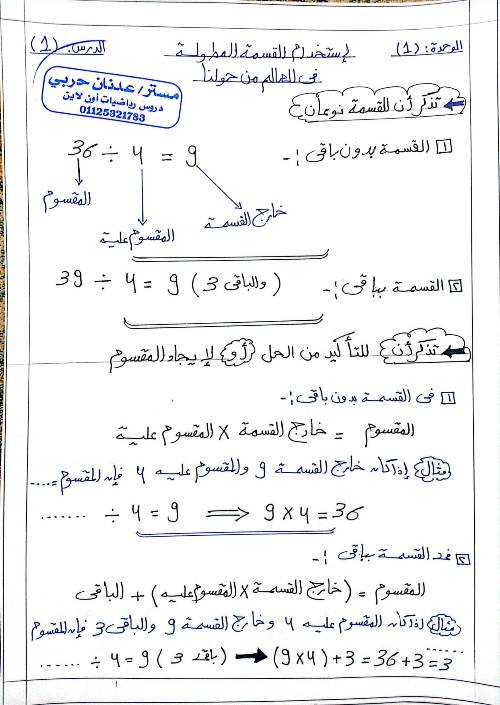 الوحدة: (1) إستخدام القسمة المطولة الدرس: (1)
فى العالم من حولنا
مستر/ عدنان حربي
دروس رياضيات أون لاين
01125321783
تذكر أن للقسمة نوعان
1 القسمة بدون باقى :-
36 ÷ 4 = 9
المقسوم
المقسوم علية
خارج القسمة
2 القسمة بباقى :-
39 ÷ 4 = 9 (والباقى 3)
تذكر أن للتأكيد من الحل (أو) لإيجاد المقسوم
1 فى القسمة بدون باقى :-
المقسوم = خارج القسمة X المقسوم علية
مثال إذا كان خارج القسمة 9 والمقسوم عليه 4 فإن المقسوم = ....
....... ÷ 4 = 9 ⟹ 9 x 4 = 36
2 عند القسمة بباقى :-
المقسوم = (خارج القسمة X المقسوم عليه) + الباقى
مثال إذا كان المقسوم عليه 4 وخارج القسمة 9 والباقى 3 فإن المقسوم
...... ÷ 4 = 9 (باقى 3) → (9 x 4) + 3 = 36 + 3 = 3